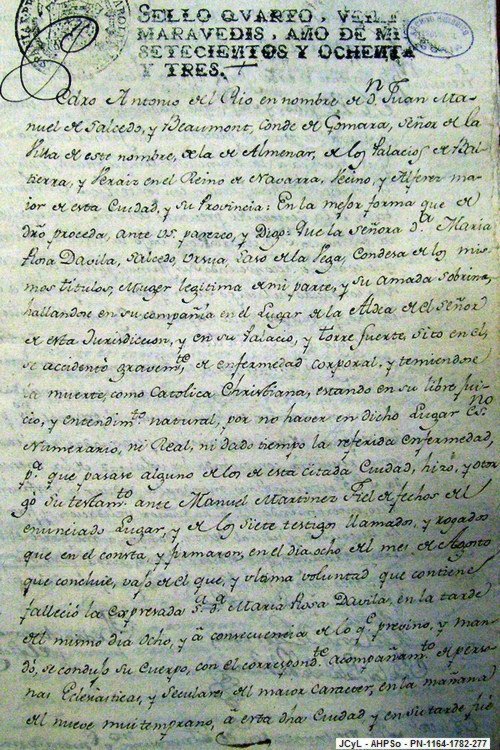 SELLO QVARTO, VEIN
MARAVEDIS, AÑO DE MIL
SETECIENTOS Y OCHENTA
Y TRES.
Pedro Antonio del Rio en nombre de dn. Juan Ma-
nuel de Salcedo, y Beaumont, Conde de Gomara, Señor de la
Villa de este nombre, de la de Almenar, de los Palacios de
tierra, y Veraiz en el Reino de Navarra, Vecino, y Alferez ma-
ior de esta Ciudad, y su Provincia: En la mejor forma que de
dro proceda, ante vs. parezco, y Digo: Que la Señora da. Maria
Rosa Davila, Salcedo, Ursua, Laso de la Vega, Condesa de los mis-
mos titulos, Muger legitima de mi parte, y su amada Sobrina,
hallandose en su compañia en el Lugar de la Aldea de el Señor
de esta Jurisdiccion, y en su Palacio, y torre fuerte, sito en el,
se accidentó gravemte. de enfermedad corporal, y temiendose
la muerte, como Catolica Christiana, estando en su libre jui-
cio, y entendimto. natural, por no haver en dicho Lugar esno.
Numerario, ni Real, ni dado tiempo la referida enfermedad,
pa. que pasase alguno de los de esta citada Ciudad, hizo, y otor-
gó su testamto. ante Manuel Martinez Fiel de fechos del
enunciado Lugar, y de los siete testigos llamados, y rogados
que en el consta, y firmaron, en el dia ocho del mes de Agosto
que concluie, vajo de el que, y ultima voluntad que contiene
falleció la expresada sa. da. Maria Rosa Davila, en la tarde
del mismo dia ocho, y á consecuencia de lo qe. previno, y man-
dó, se condujo su Cuerpo, con el correspondte. acompañamto. de perso-
nas Eclesiasticas, y Seculares del maior Caracter, en la mañana
del nueve mui temprano, á esta dha Ciudad y en su tarde fue
JCyL - AHPSo - PN-1164-1782-277